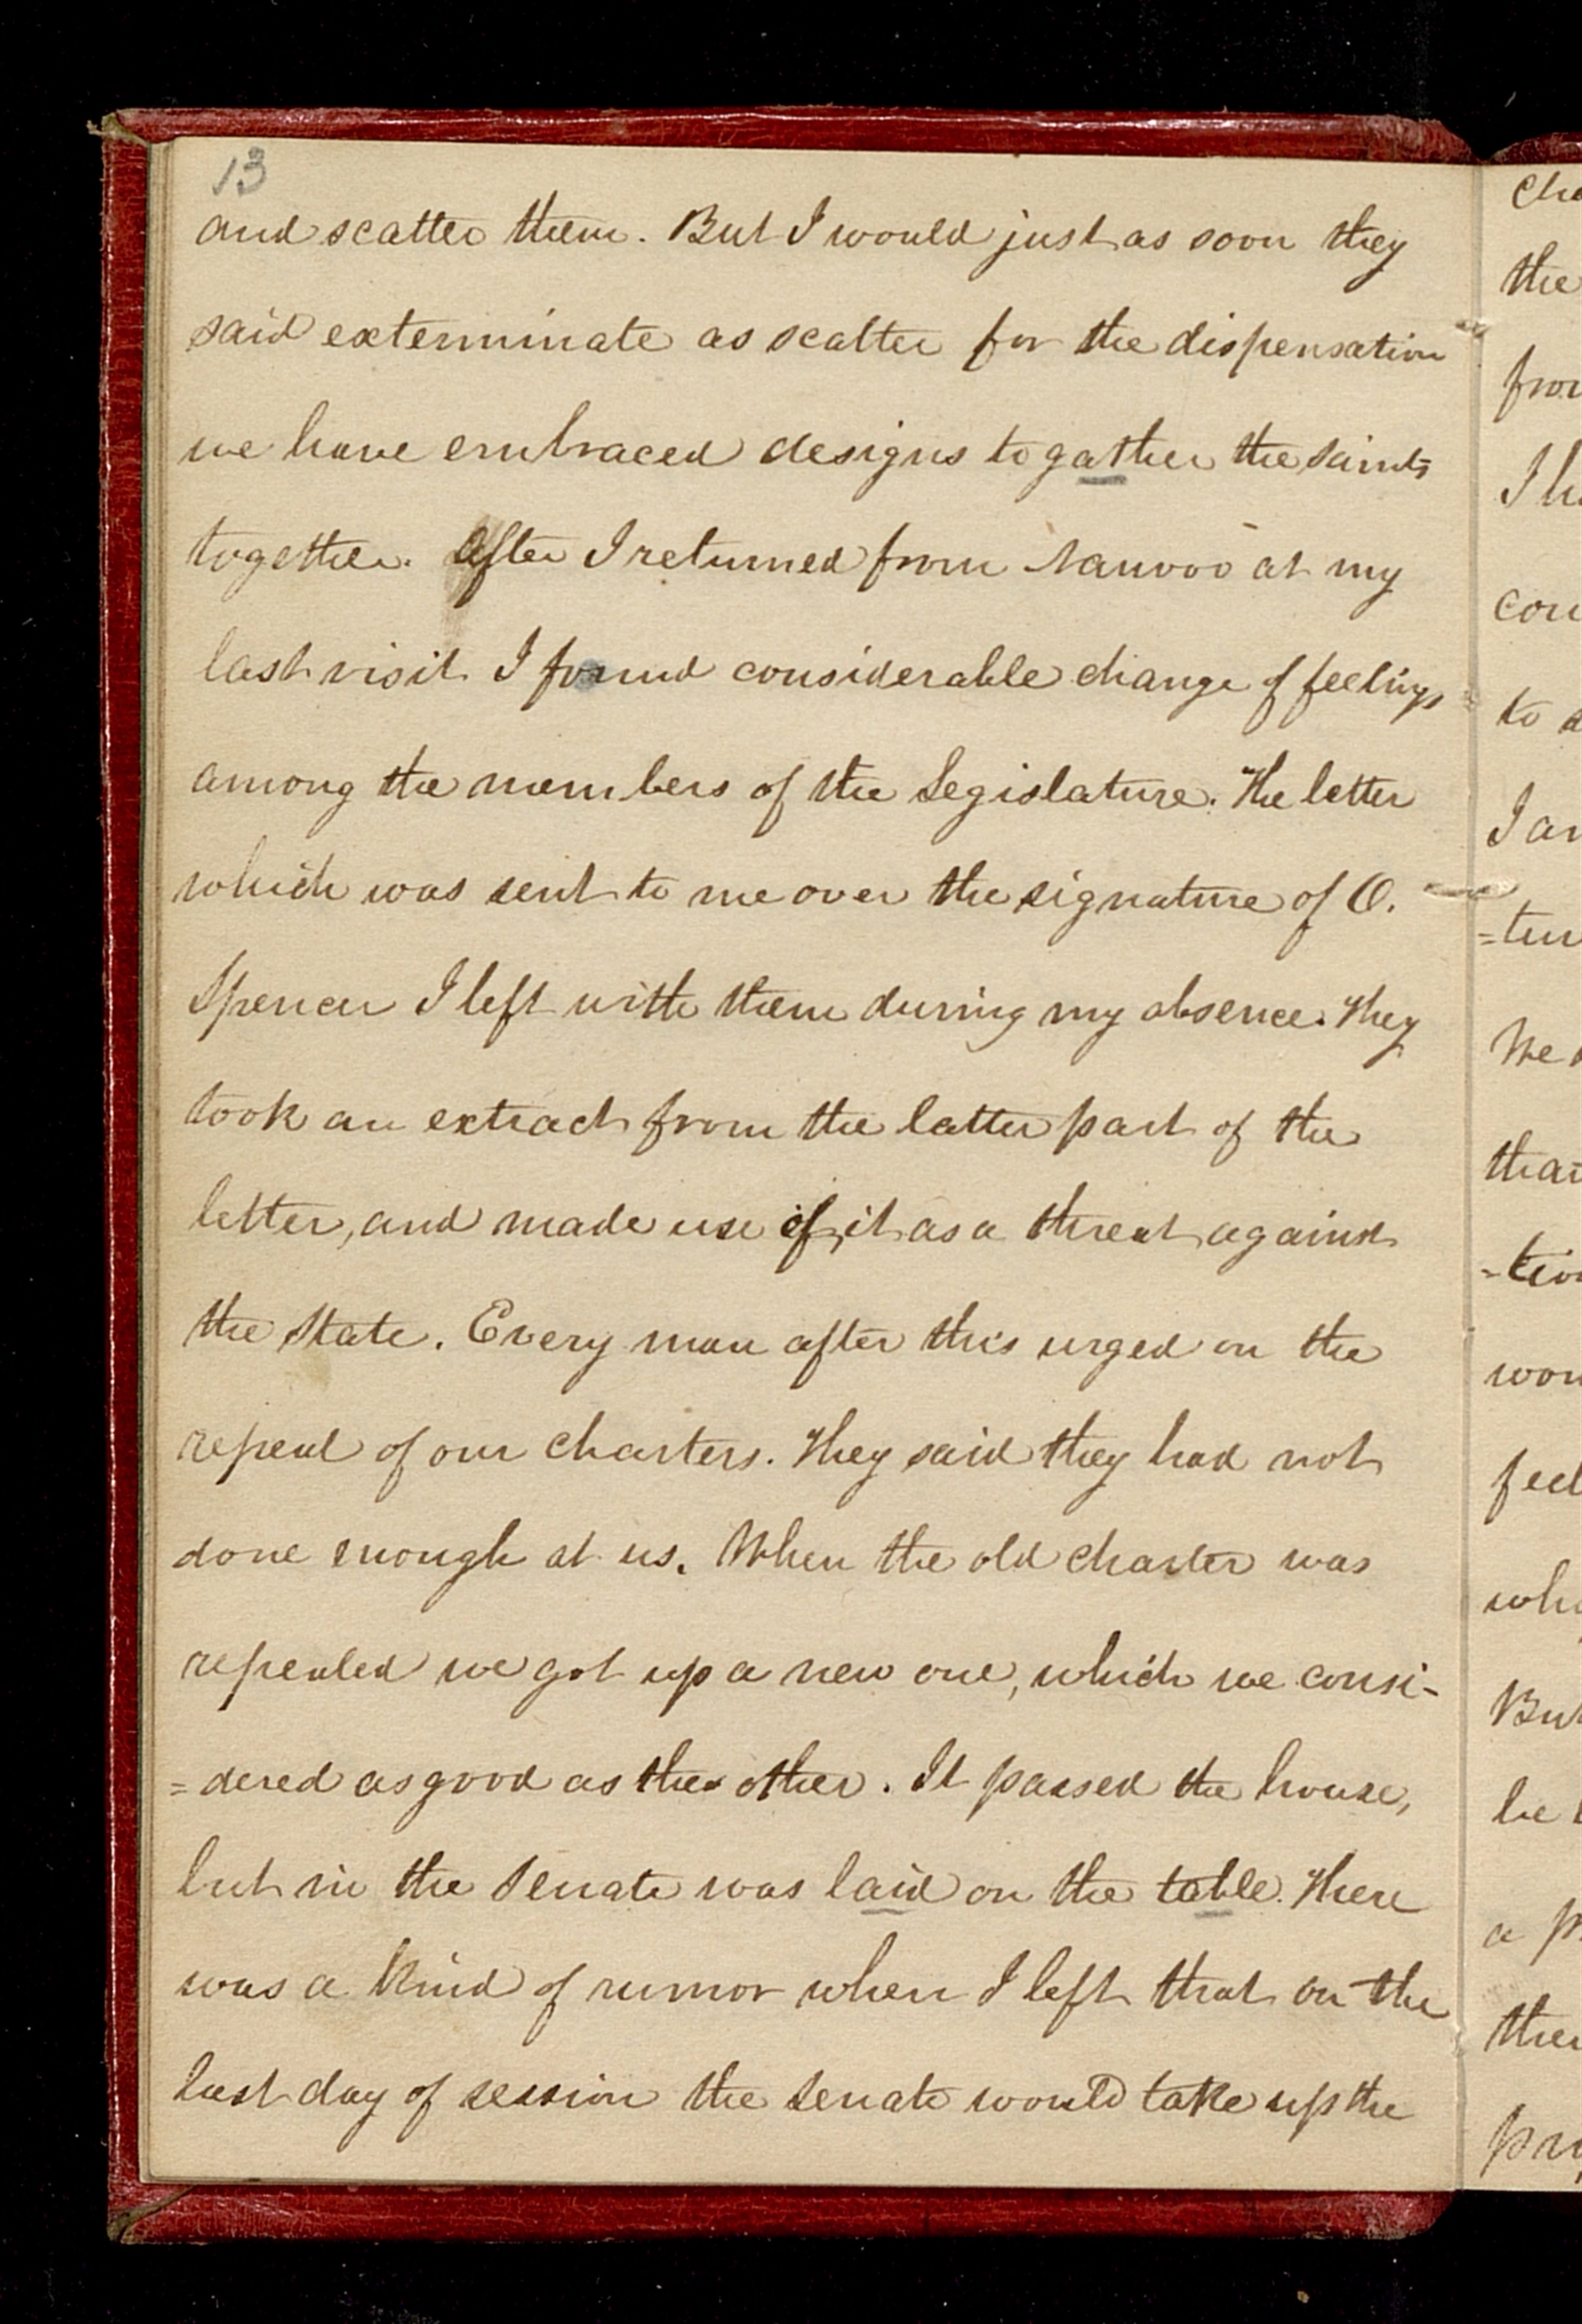 13
and scatter them. But I would just as soon they
said exterminate as scatter for the dispensation
we have embraced designs to gather the saints
together. After I returned from Nauvoo at my
last visit I found considerable change of feelings
among the members of the Legislature. The letter
which was sent to me over the signature of O.
Spencer I left with them during my absence. They
took an extract from the latter part of the
letter, and made use of it as a threat against
the State. Every man after this urged on the
repeal of our charters. They said they had not
done enough at us. When the old charter was
repealed we got up a new one, which we consi-
=dered as good as the other. It passed the house,
but in the Senate was laid on the table. There
was a kind of rumor when I left that on the
last day of session the Senate would take up the
Cha
the
from
I h
con
to
I am
=tur
We
than
=tion
wou
feel
who
But
be
a p
ther
pro